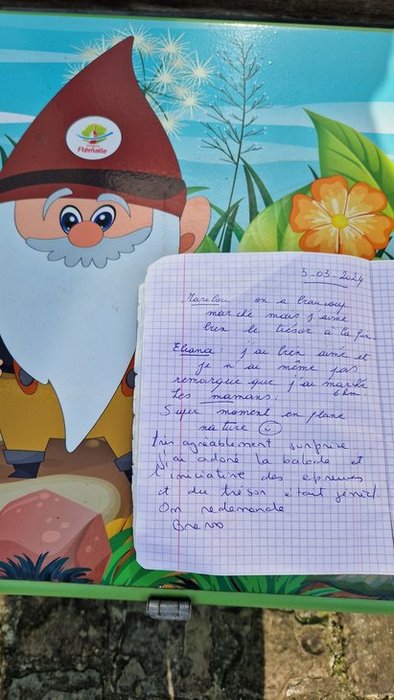 Flémalle
5-03-2024
Marilou: on a beaucoup
marché mais j'aime
bien le trésor à la fin.
Eliana: j'ai bien aimé et
je n'ai même pas
remarqué que j'ai marché
6 km.
Les mamans:
Super moment en pleine
nature
très agréablement surprise
J'ai adoré la balade et
l'initiative des épreuves
et du trésor était génial.
On redemande
Bravo